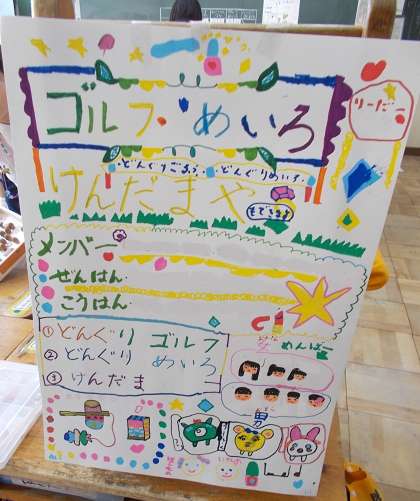 りーだー
ゴルフ・めいろ
・どんぐりごるふ・どんぐりめいろ・
けんだまや
もできるよ
メンバー
ぜんはん
こうはん
①どんぐり ゴルフ
②どんぐり めいろ
③けんだま
女 めんばー
男